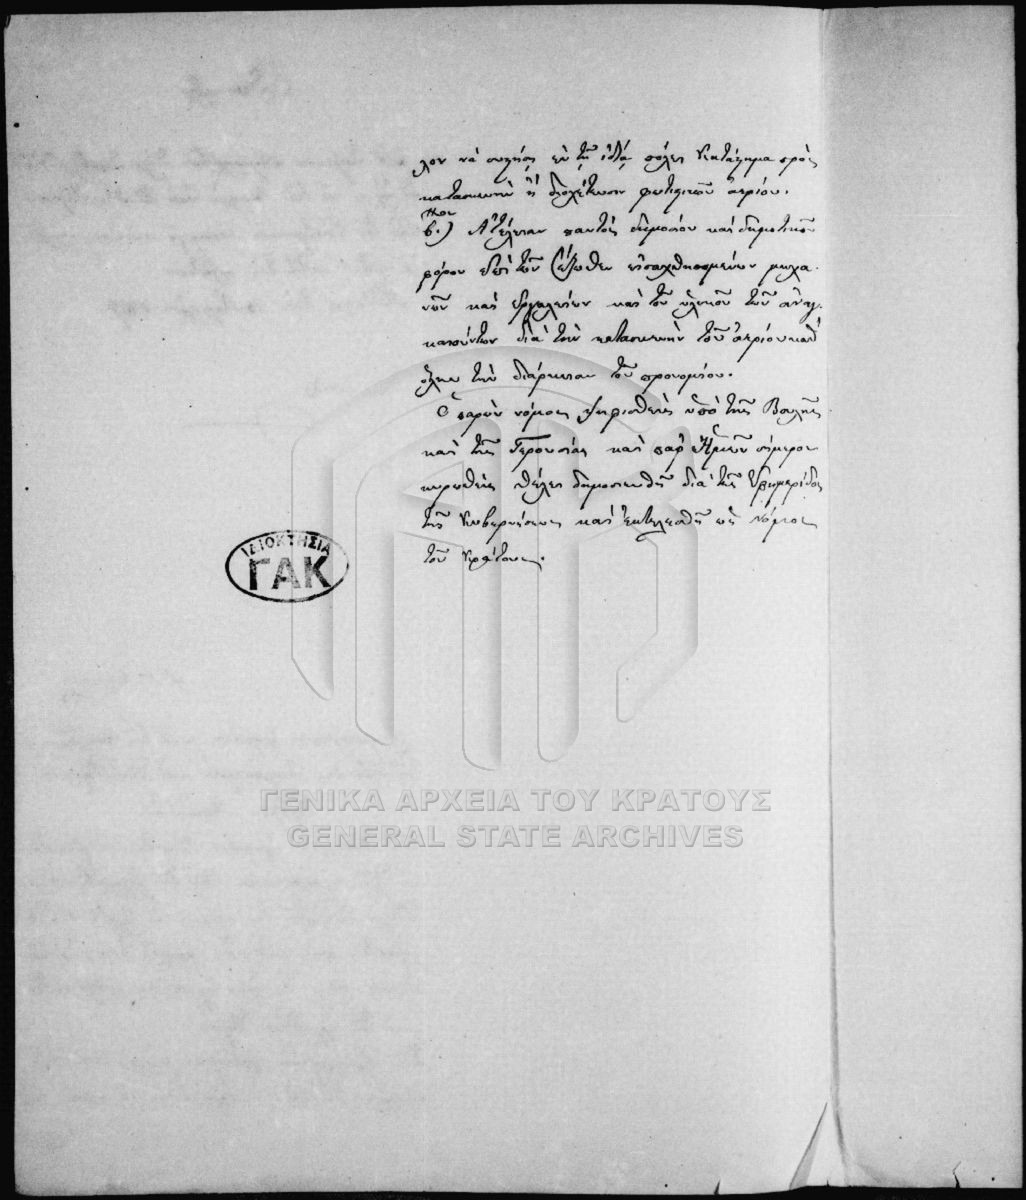 λον νὰ συστήσῃ ἐν τῇ ἰδίᾳ πόλει κατάστημα πρὸς
κατασκευὴν ἢ διοχέτευσιν φωτιστικοῦ ἀερίου.
β.) Ἀτέλειαν παντὸς δημοσίου καὶ δημοτικοῦ
φόρου ἐπὶ τῶν ἔξωθεν εἰσαχθησομένων μηχα-
νῶν καὶ ἐργαλείων καὶ τοῦ ὑλικοῦ τῶν ἀναγ-
καιούντων διὰ τὴν κατασκευὴν τοῦ ἀερίου καθ'
ὅλην τὴν διάρκειαν τοῦ προνομίου.
Ὁ παρὼν νόμος ψηφισθεὶς ὑπὸ τῆς Βουλῆς
καὶ τῆς Γερουσίας καὶ παρ' Ἡμῶν σήμερον
κυρωθεὶς θέλει δημοσιευθῆ διὰ τῆς Ἐφημερίδος
τῆς Κυβερνήσεως καὶ ἐκτελεσθῆ ὡς Νόμος
τοῦ Κράτους.
ΙΔΙΟΚΤΗΣΙΑ
ΓΑΚ
ΓΕΝΙΚΑ ΑΡΧΕΙΑ ΤΟΥ ΚΡΑΤΟΥΣ
GENERAL STATE ARCHIVES